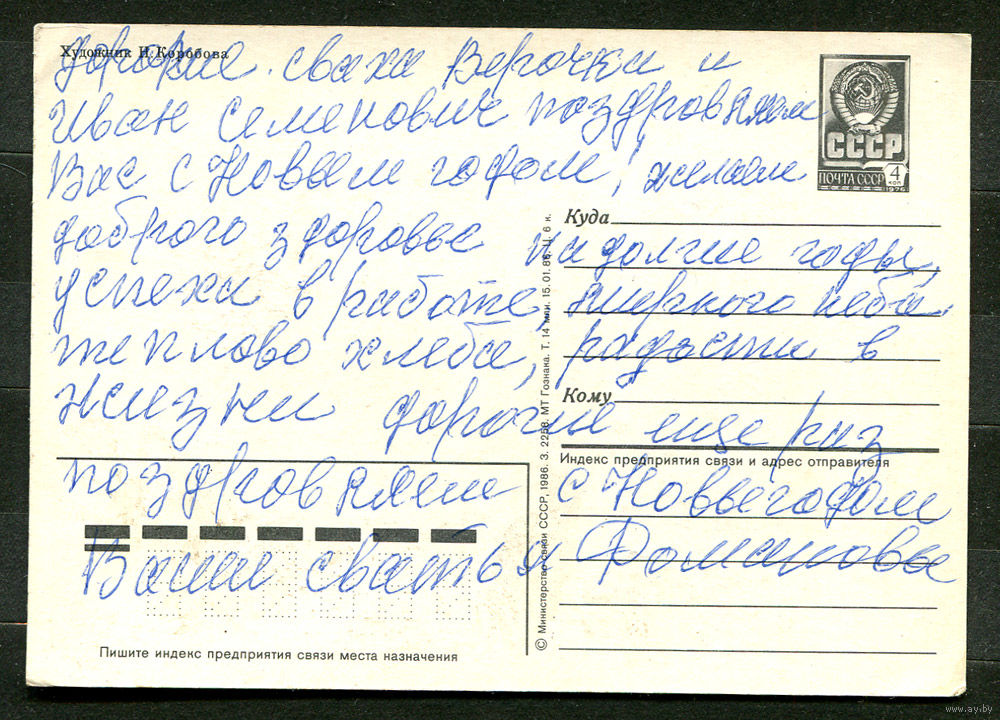 Художник Н. Коробова
дорогие сваха Верочка и
Иван Семенович поздровляем
Вас с Новым годом, желаем
доброго здоровье на долгие годы,
успеха в работе, мирного неба,
теплово хлеба, радости в
жизни дорогие ище раз
поздровляем с Новым годом
Ваши сваты Фомановы
СССР
ПОЧТА СССР 4 коп
1976
Куда
Кому
Индекс предприятия связи и адрес отправителя
Пишите индекс предприятия связи места назначения
© Министерство связи СССР, 1986. З. 2258. МТ Гознака. Т. 14 млн. 15.01.86. Ц. 6 к.
www.ay.by